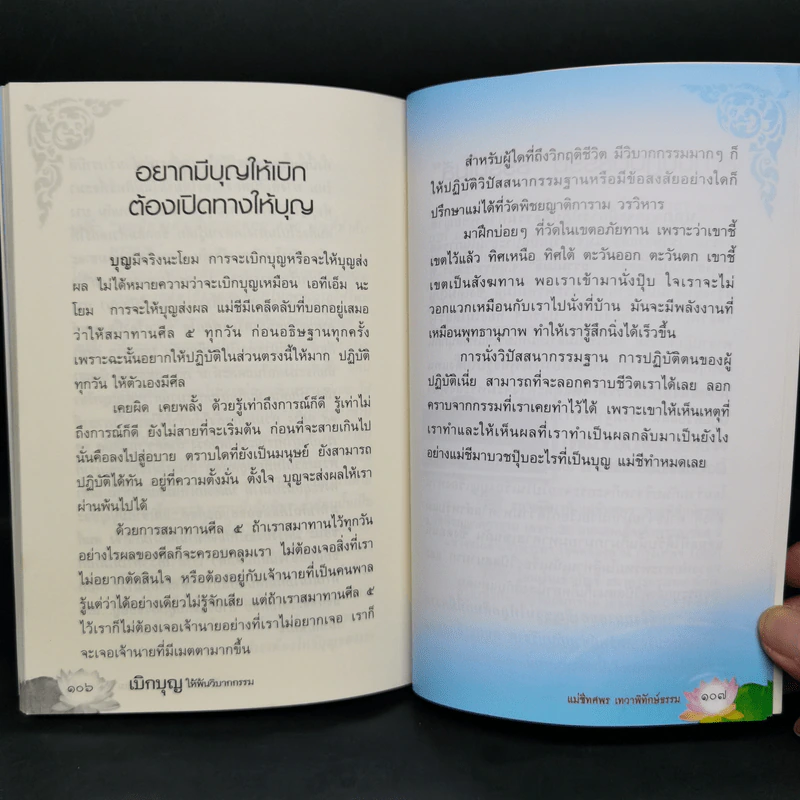 อยากมีบุญให้เบิก
ต้องเปิดทางให้บุญ
บุญมีจริงนะโยม การจะเบิกบุญหรือจะให้บุญส่ง
ผล ไม่ได้หมายความว่าจะเบิกบุญเหมือน เอทีเอ็ม นะ
โยม การจะให้บุญส่งผล แม่ชีมีเคล็ดลับที่บอกอยู่เสมอ
ว่าให้สมาทานศีล ๕ ทุกวัน ก่อนอธิษฐานทุกครั้ง
เพราะฉะนั้นอยากให้ปฏิบัติในส่วนตรงนี้ให้มาก ปฏิบัติ
ทุกวัน ให้ตัวเองมีศีล
เคยผิด เคยพลั้ง ด้วยรู้เท่าถึงการณ์ก็ดี รู้เท่าไม่
ถึงการณ์ก็ดี ยังไม่สายที่จะเริ่มต้น ก่อนที่จะสายเกินไป
นั่นคือลงไปสู่อบาย ตราบใดที่ยังเป็นมนุษย์ ยังสามารถ
ปฏิบัติได้ทัน อยู่ที่ความตั้งมั่น ตั้งใจ บุญจะส่งผลให้เรา
ผ่านพ้นไปได้
ด้วยการสมาทานศีล ๕ ถ้าเราสมาทานไว้ทุกวัน
อย่างไรผลของศีลก็จะครอบคลุมเรา ไม่ต้องเจอสิ่งที่เรา
ไม่อยากตัดสินใจ หรือต้องอยู่กับเจ้านายที่เป็นคนพาล
รู้แต่ว่าได้อย่างเดียวไม่รู้จักเสีย แต่ถ้าเราสมาทานศีล ๕
ไว้เราก็ไม่ต้องเจอเจ้านายอย่างที่เราไม่อยากเจอ เราก็
จะเจอเจ้านายที่มีเมตตามากขึ้น
๑๐๖ เบิกบุญ ให้พ้นวิบากกรรม
สำหรับผู้ใดที่ถึงวิกฤติชีวิต มีวิบากกรรมมากๆ ก็
ให้ปฏิบัติวิปัสสนากรรมฐานหรือมีข้อสงสัยอย่างใดก็
ปรึกษาแม่ได้ที่วัดพิชยญาติการาม วรวิหาร
มาฝึกบ่อยๆ ที่วัดในเขตอภัยทาน เพราะว่าเขาชี้
เขตไว้แล้ว ทิศเหนือ ทิศใต้ ตะวันออก ตะวันตก เขาชี้
เขตเป็นสังฆทาน พอเราเข้ามานั่งปุ๊บ ใจเราจะไม่
วอกแวกเหมือนกับเราไปนั่งที่บ้าน มันจะมีพลังงานที่
เหมือนพุทธานุภาพ ทำให้เรารู้สึกนิ่งได้เร็วขึ้น
การนั่งวิปัสสนากรรมฐาน การปฏิบัติตนของผู้
ปฏิบัติเนี่ย สามารถที่จะลอกคราบชีวิตเราได้เลย ลอก
คราบจากกรรมที่เราเคยทำไว้ได้ เพราะเขาให้เห็นเหตุที่
เราทำและให้เห็นผลที่เราทำเป็นผลกลับมาเป็นยังไง
อย่างแม่ชีมาบวชปุ๊บอะไรที่เป็นบุญ แม่ชีทำหมดเลย
แม่ชีทศพร เทวาพิทักษ์ธรรม ๑๐๗